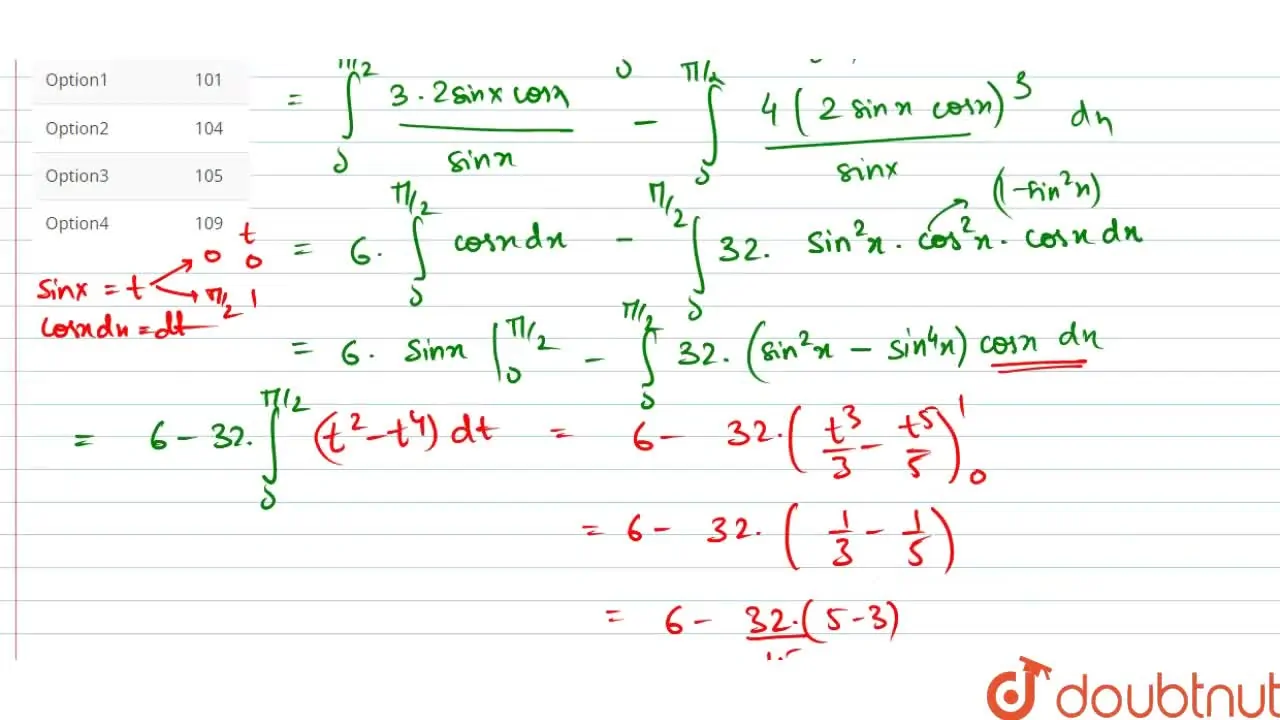 Option1 101
Option2 104
Option3 105
Option4 109
= ∫₀^{π/2} (3·2sinx cosx)/(sinx) − ∫₀^{π/2} (4(2 sinx cosx)³)/(sinx) dx
(1−sin²x)
= 6· ∫₀^{π/2} cosx dx − ∫₀^{π/2} 32· sin²x · cos²x · cosx dx
sinx = t
0 π/2
t
0 1
cosx dx = dt
= 6· sinx |₀^{π/2} − ∫₀^{π/2} 32· (sin²x − sin⁴x) cosx dx
= 6 − 32· ∫₀^{π/2} (t² − t⁴) dt = 6 − 32· (t³/3 − t⁵/5)₀¹
= 6 − 32· (1/3 − 1/5)
= 6 − 32·(5−3)/15
doubtnut